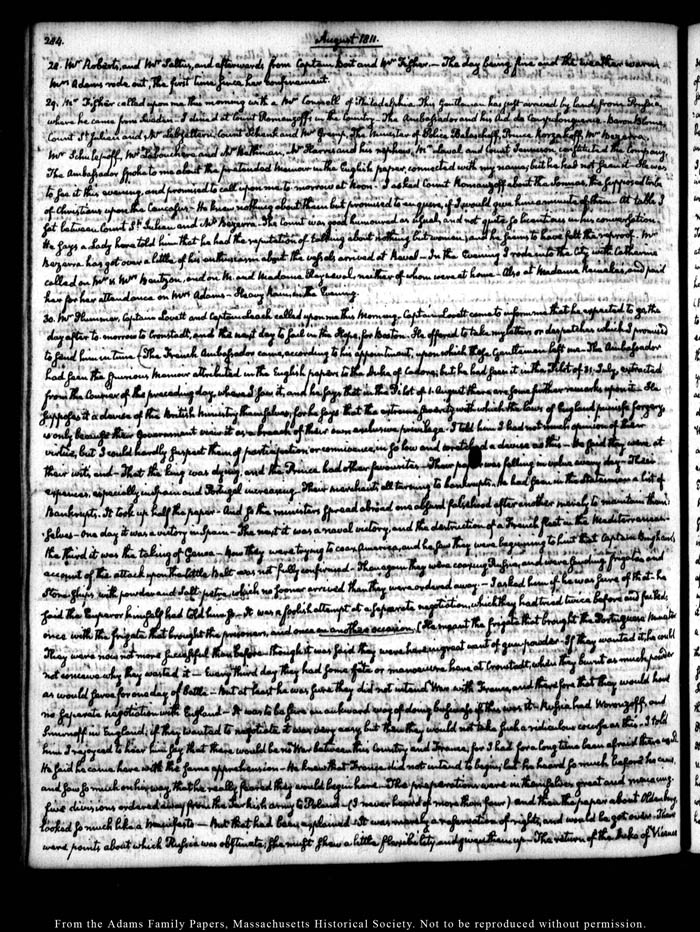 284.
August 1811.
28. Mr Roberts, and Mr Fettus, and afterwards from Captain Bot and Mr Fisher. — The day being fine and the weather warm,
Mrs Adams rode out, the first time since her confinement.
29. Mr Fisher called upon me this morning with a Mr Connell of Philadelphia. This Gentleman has just arrived by land, from Prussia,
where he came from Sweden. I dined at Count Romanzoff's in the Country. The Ambassador and his Aid de Camp Longuerue. Baron Blome,
Count St Julien and Mr Lebzeltern, Count Schenk and Mr Gremp, The Minister of Police Balascheff, Prince Korzakoff, Mr Bezerra,
Mr Schulepoff, Mr Labouchere and Mr Harris and his nephew, Mr Laval and Count constituted the Company.
The Ambassador spoke to me about the pretended Memoir in the English paper, connected with my name, but he had not seen it. He was
to see it this evening, and promised to call upon me to-morrow at Noon. I asked Count Romanzoff about the the supposed tribe
of Christians upon the Caucasus. He knew nothing about them but promised to enquire, if I would give him a minute of them. At table I
sat between Count St Julien and Mr Bezerra. The Count was good humoured as usual, and not quite so licentious in his conversation.
He says a Lady here told him that he had the reputation of talking about nothing but women, and he seems to have felt the reproof. Mr
Bezerra has got over a little of his enthusiasm about the vessels arrived at Reval — In the Evening I rode into the City with Catherine
called on Mr & Mrs Bentzon, and on M. and Madame Rayneval, neither of whom were at home — Also at Madame and paid
her for her attendance on Mrs Adams — Heavy rain in the Evening.
30. Mr Plummer, Captain Lovett and Captain Leach called upon me this Morning. Captain Lovett came to inform me that he expected to go the
day after to-morrow to Cronstadt, and the next day to sail in the Hope, for Boston. He offered to take my letters or despatches which I promised
to send him in time. The French Ambassador came, according to his appointment, upon which these Gentlemen left me. The Ambassador
had seen the spurious Memoir attributed in the English papers to the Duke of Cadore, but he had seen it in the Pilot of 31. July, extracted
from the Courier of the preceding day, where I saw it, and he says that in the Pilot of 1. August there are some further remarks upon it. He
supposes it a device of the British Ministry themselves, for he says that the extreme severity with which the laws of England punish forgery,
is only because their Government view it as a breach of their own exclusive privilege. I told him I had not much opinion of their
virtue, but I could hardly suspect them of participation or connivance, in so low and wretched a device as this — He said they were at
their wits end — That the king was dying, and the Prince had other favourites — Their paper was falling in value every day — Their
expences, especially in Spain and Portugal increasing. Their merchants all turning to bankrupts. He had seen in the Statesman a list of
Bankrupts. It took up half the paper — And so the ministers spread abroad one absurd falsehood after another merely to maintain them-
selves — One day it was a victory in Spain — The next it was a naval victory, and the destruction of a French fleet in the Mediterranean —
the third it was the taking of Genoa — Now they were trying to coax America, and he saw they were beginning to hint that Captain Bingham's
account of the attack upon the Little Belt was not fully confirmed — Then again they were coaxing Russia, and were sending frigates and
store ships with powder and Salt-petre, which no sooner arrived than they were ordered away — I asked him if he was sure of that — he
said the Emperor himself had told him so. It was a foolish attempt at a separate negotiation, which they had tried twice before and failed;
once with the frigate that brought the prisoners, and once on another occasion. (He meant the frigate that brought the Portuguese Minister)
They were now not more successful than before. Though it was said they were here in great want of gun-powder — If they wanted it he could
not conceive why they wasted it — Every third day they had some fete or manoeuvre here at Cronstadt, when they burnt as much powder
as would serve for one day of battle — But at least he was sure they did not intend War with France, and therefore that they would have
no separate negotiation with England — It was to be sure an awkward way of doing business if this was it. Russia had Woronzoff, and
Smirnoff in England; if they wanted to negotiate it was very easy, but then they would not take such a ridiculous course as this. I told
him I rejoiced to hear him say that there would be no War between this Country and France, for I had for a long time been afraid there would.
He said he came here with the same apprehension — He knew that France did not intend to begin; but he heard so much before he came,
and saw so much on his way, that he really feared they would begin here. The preparations were in themselves great and menacing.
Five divisions ordered away from the Turkish army to Poland — (I never heard of more than four) and then the paper about Oldenburg,
looked so much like a Manifesto — But that had been explained — It was merely a reservation of rights, and would be got over. There
were points about which Russia was obstinate; she must shew a little flexibility and give them up. The return of the Duke of Vicenza
From the Adams Family Papers, Massachusetts Historical Society. Not to be reproduced without permission.